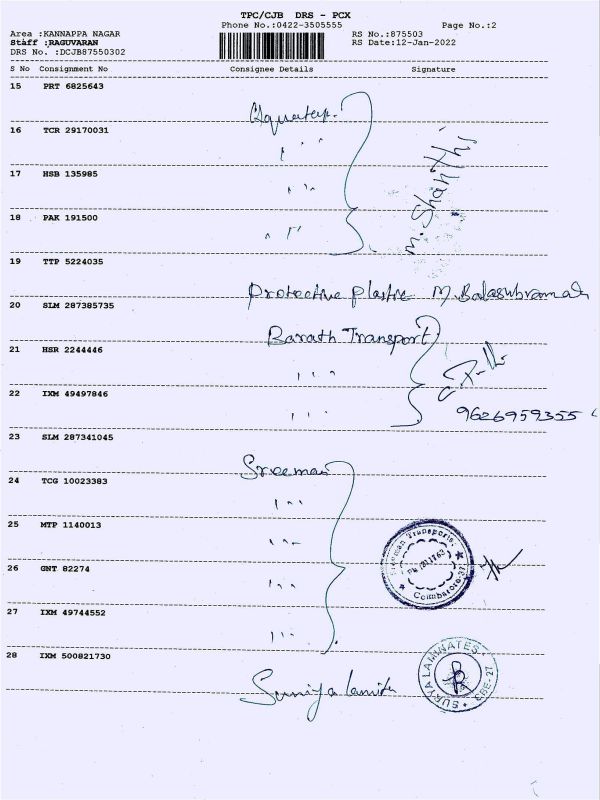 TPC/CJB DRS - PCX
Phone No.:0422-3505555 Page No.:2
Area :KANNAPPA NAGAR RS No.:875503
Staff :RAGUVARAN RS Date:12-Jan-2022
DRS No. :DCJB87550302
S No Consignment No Consignee Details Signature
15 PRT 6825643
16 TCR 29170031
M. Shanthi
17 HSB 135985
18 PAK 191500
19 TTP 5224035
Protective plastic
20 SLM 287385735
Barath Transport
21 HSR 2244446
22 IXM 49497846
9626959355
23 SLM 287341045
Sreeman
24 TCG 10023383
25 MTP 1140013
Sreeman Transports,
Coimbatore-27
26 GNT 82274
27 IXM 49744552
28 IXM 500821730
SURYA LAMINATES
CBE-27